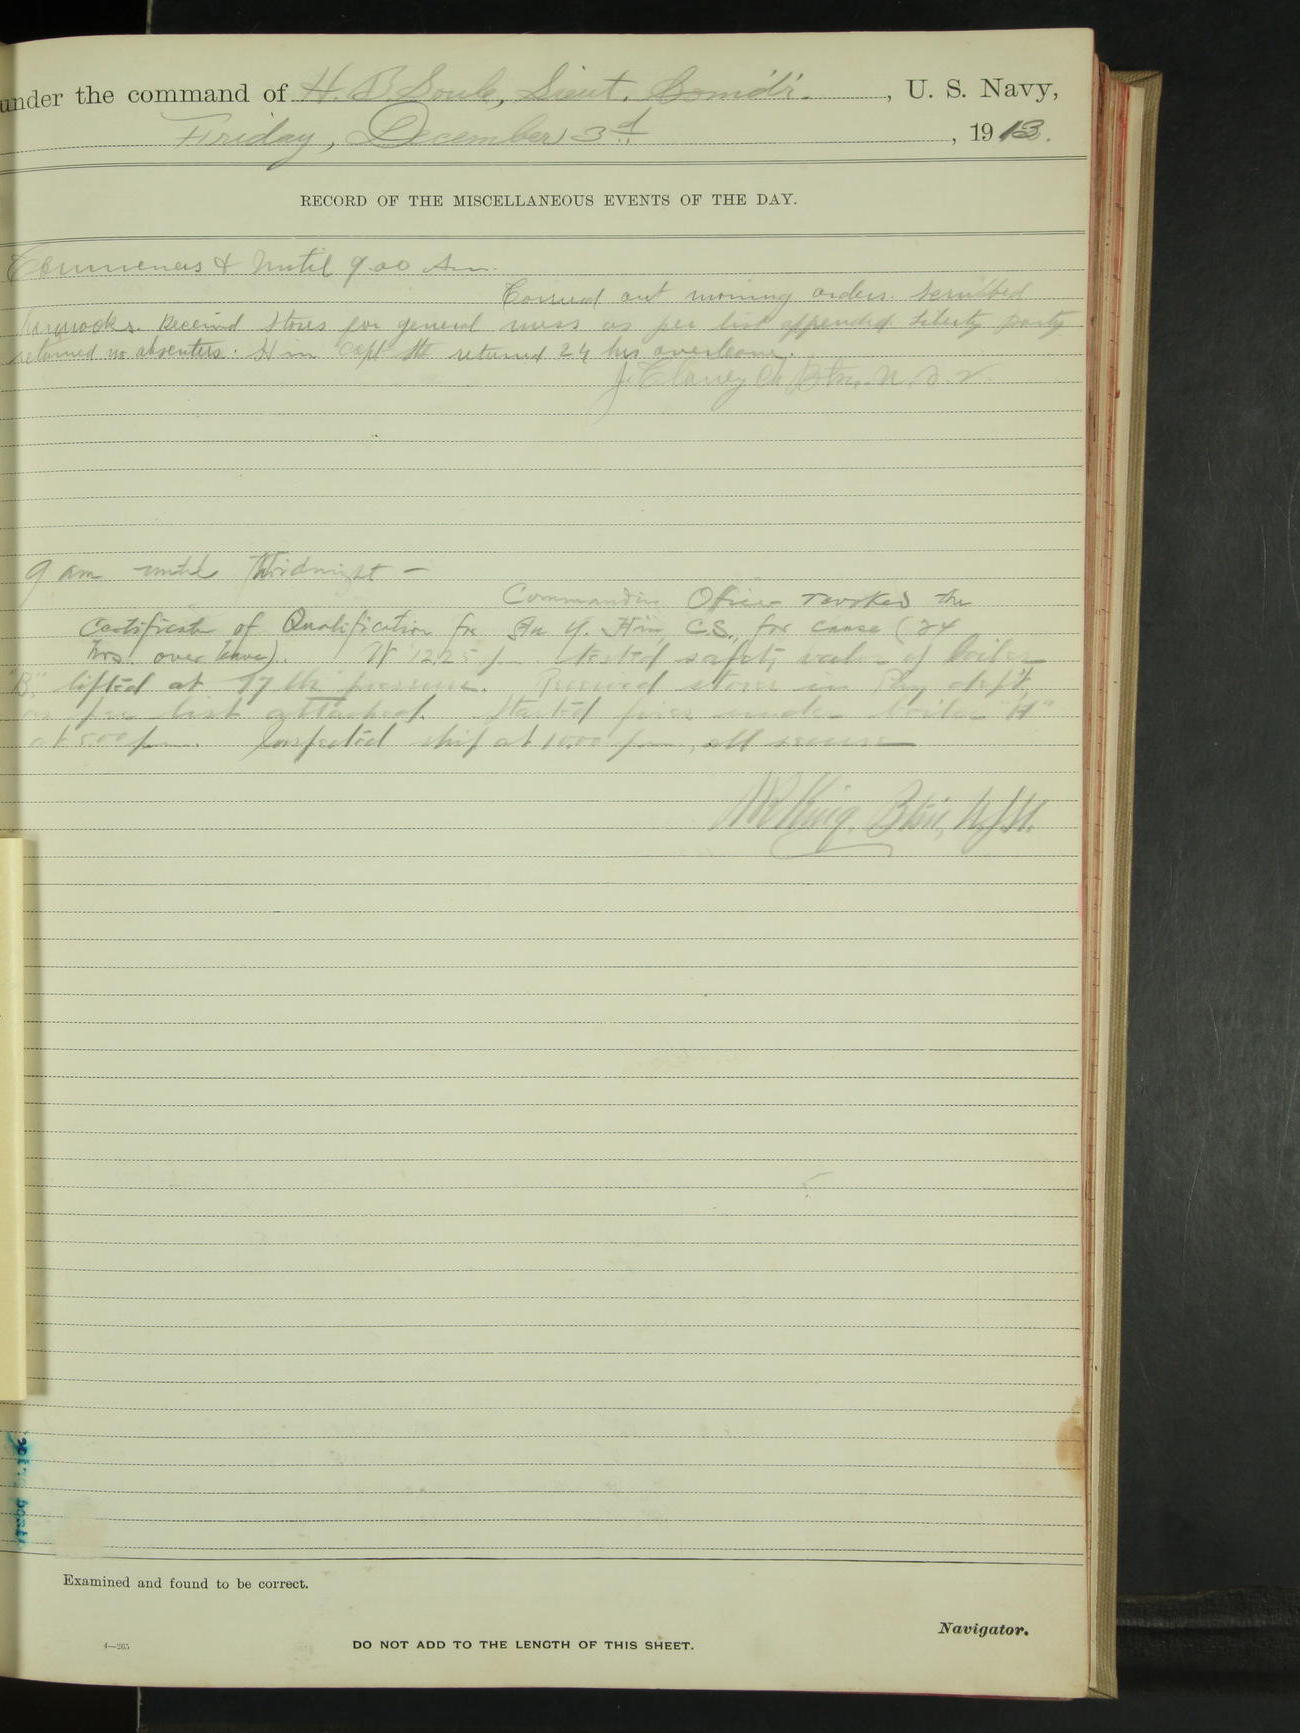 under the command of H. B. Soule, Lieut. Comd'r., U. S. Navy,
Friday, December 3d, 1913.
RECORD OF THE MISCELLANEOUS EVENTS OF THE DAY.
Commences & until 9.00 Am.
Carried out morning orders. Scrubbed
hammocks. Received stores for general mess as per list appended liberty party
returned no absentees. returned 24 hrs overleave.
J. Clancy Ch. Btsn. U. S. N.
9 am until Midnight —
Commanding Officer revoked the
Certificate of Qualification for C.S., for cause (24
hrs. over leave). At 12.25 pm tested safety valve of boiler
"B," lifted at pressure. Received stores in Pay dep't,
as per list attached. Started fires under boiler "A"
at 5.00 pm. Inspected ship at 10.00 pm, all secure
King, Btsn, U.S.N.
Examined and found to be correct.
Navigator.
4—265
DO NOT ADD TO THE LENGTH OF THIS SHEET.